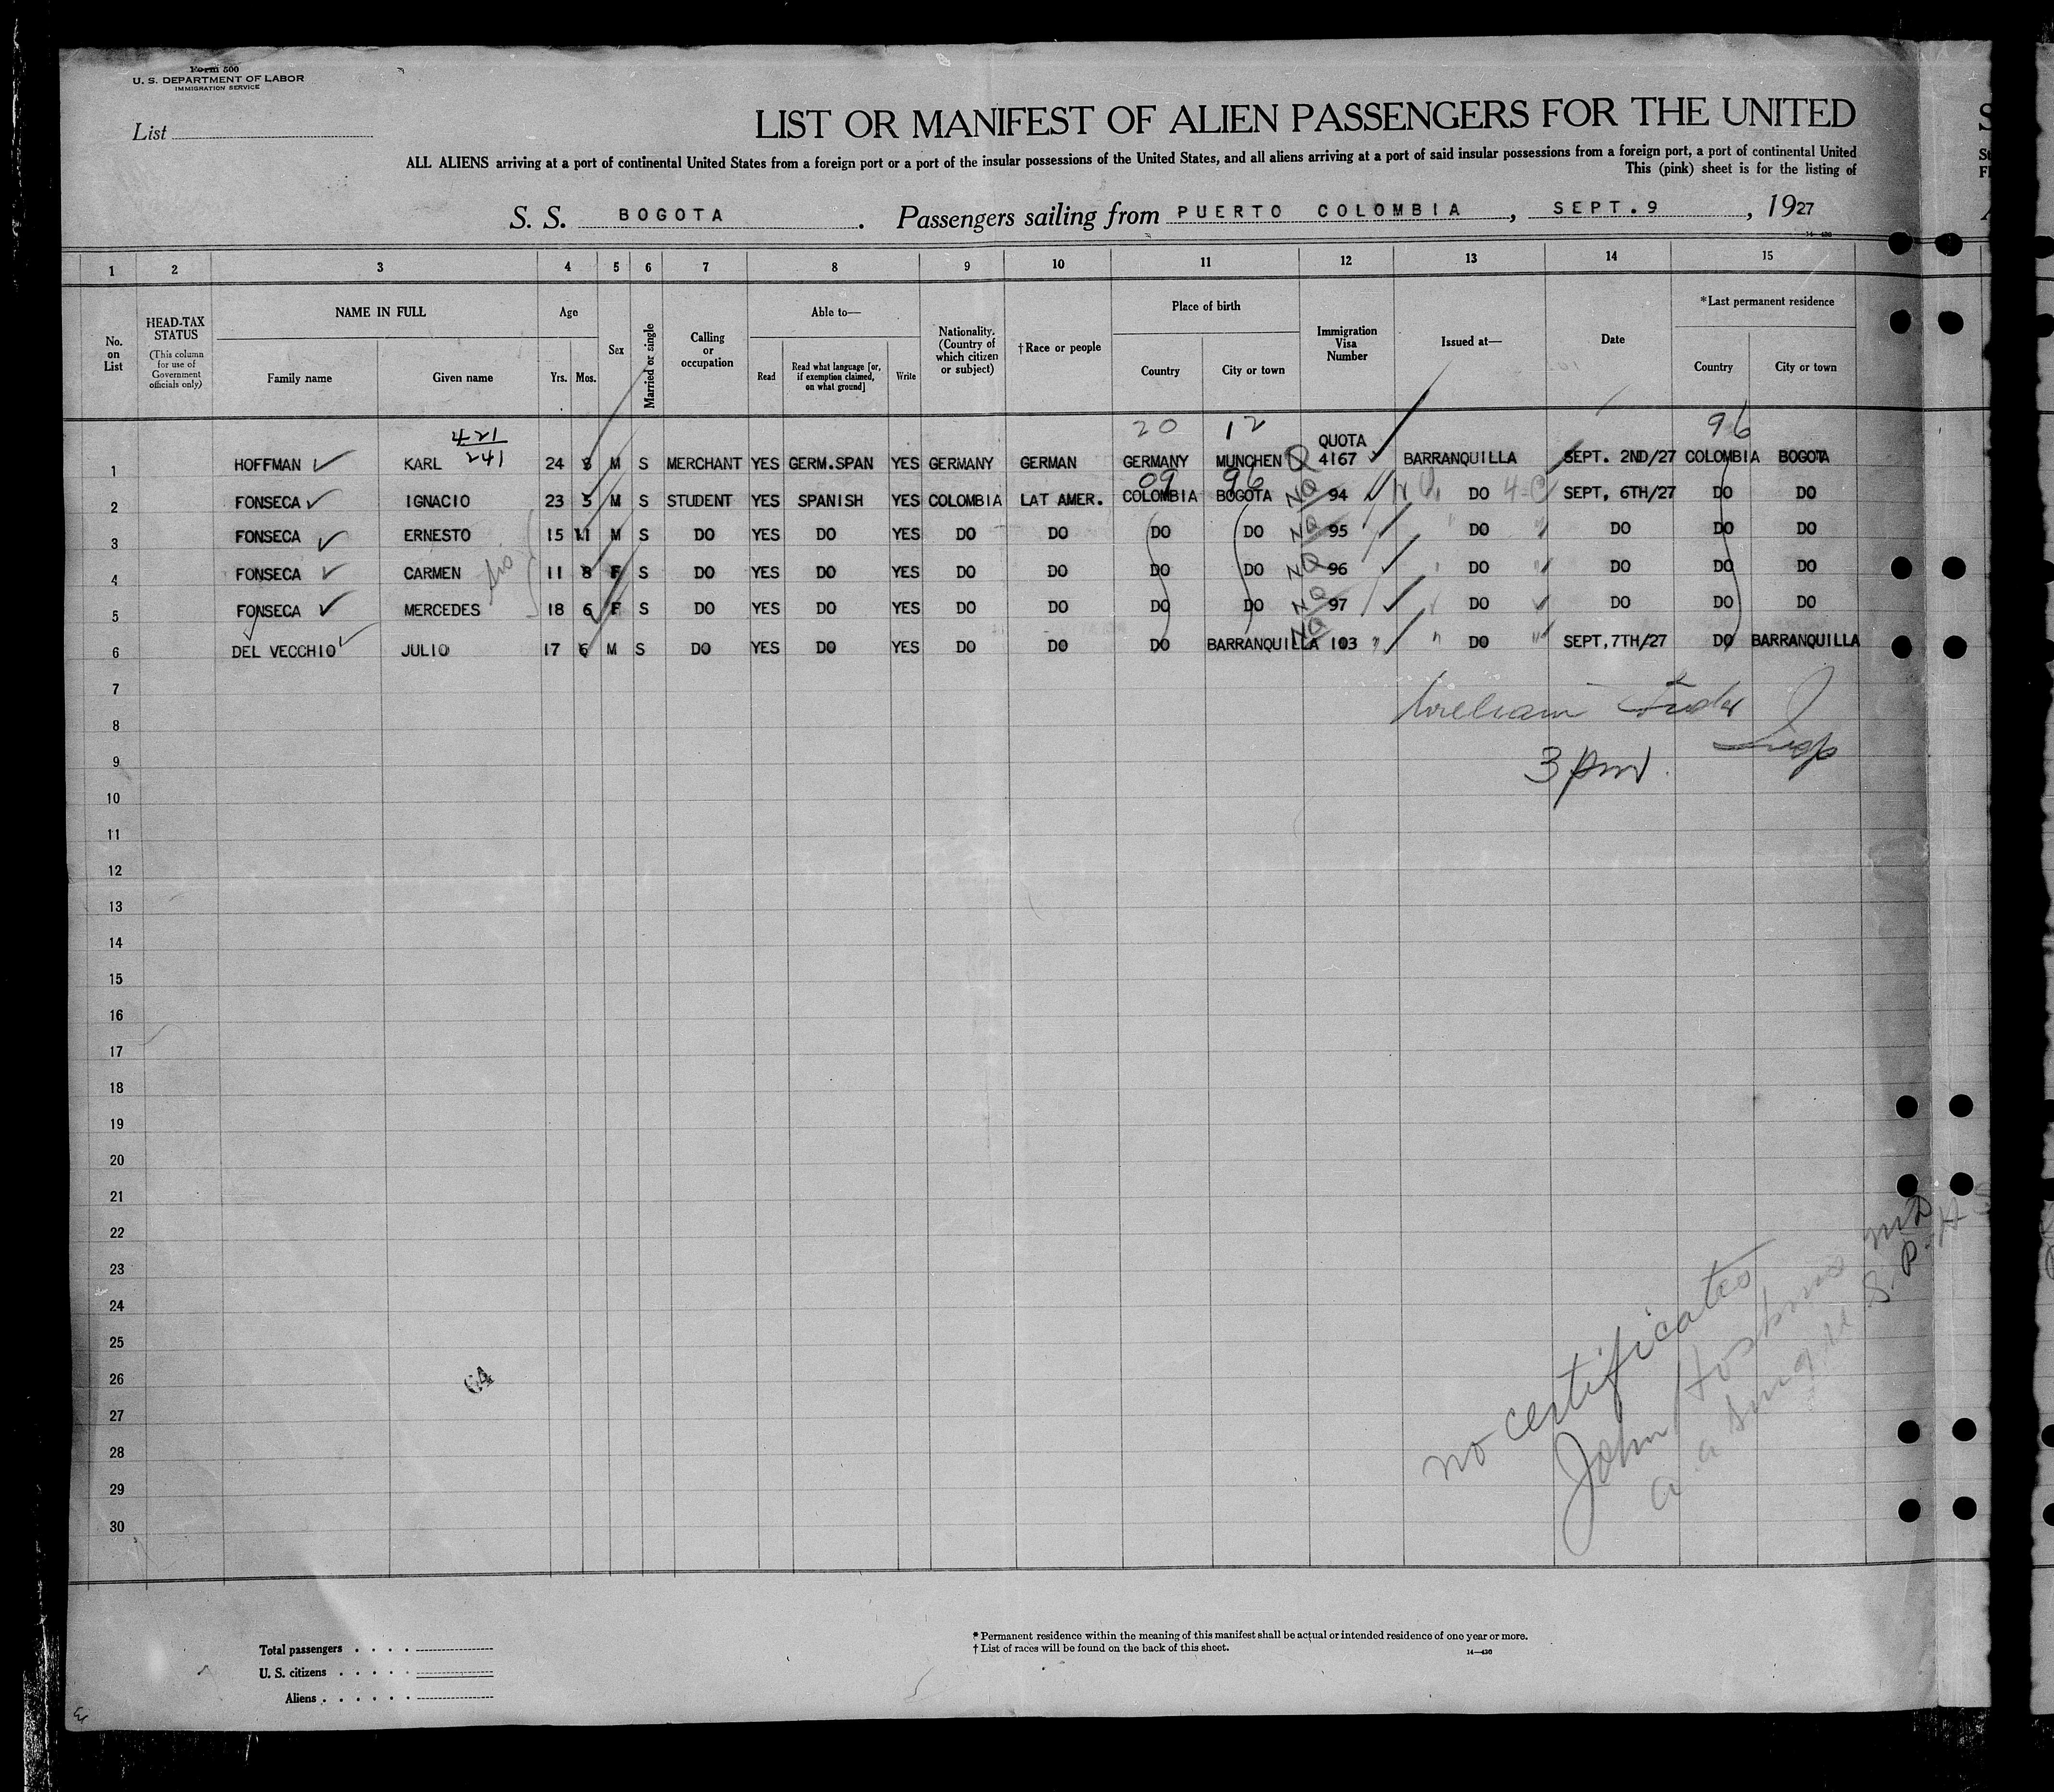 Form 500
U. S. DEPARTMENT OF LABOR
IMMIGRATION SERVICE
List
LIST OR MANIFEST OF ALIEN PASSENGERS FOR THE UNITED
ALL ALIENS arriving at a port of continental United States from a foreign port or a port of the insular possessions of the United States, and all aliens arriving at a port of said insular possessions from a foreign port, a port of continental United
This (pink) sheet is for the listing of
S. S. BOGOTA. Passengers sailing from PUERTO COLOMBIA, SEPT.9, 1927
1 2 3 4 5 6 7 8 9 10 11 12 13 14 15
No. on List
HEAD-TAX STATUS
(This column for use of Government officials only)
NAME IN FULL
Family name Given name
Age
Yrs. Mos.
Sex
Married or single
Calling or occupation
Able to—
Read
Read what language [or, if exemption claimed, on what ground]
Write
Nationality. (Country of which citizen or subject)
†Race or people
Place of birth
Country City or town
Immigration Visa Number
Issued at—
Date
*Last permanent residence
Country City or town
421
241
20 12 96
QUOTA
1 HOFFMAN KARL 24 M S MERCHANT YES GERM.SPAN YES GERMANY GERMAN GERMANY MUNCHEN Q 4167 BARRANQUILLA SEPT. 2ND/27 COLOMBIA BOGOTA
09 96
2 FONSECA IGNACIO 23 5 M S STUDENT YES SPANISH YES COLOMBIA LAT AMER. COLOMBIA BOGOTA NQ 94 DO 4-C SEPT, 6TH/27 DO DO
3 FONSECA ERNESTO 15 11 M S DO YES DO YES DO DO DO DO NQ 95 " DO " DO DO DO
4 FONSECA CARMEN 11 8 F S DO YES DO YES DO DO DO DO NQ 96 " DO " DO DO DO
5 FONSECA MERCEDES 18 6 F S DO YES DO YES DO DO DO DO NQ 97 " DO DO DO DO
6 DEL VECCHIO JULIO 17 6 M S DO YES DO YES DO DO DO BARRANQUILLA NQ 103 " " DO " SEPT,7TH/27 DO BARRANQUILLA
7
William
8
Insp
9
3 pm.
10
11
12
13
14
15
16
17
18
19
20
21
22
23
24
25
26
27
28
29
30
64
no certificates
John
MD
S. P. H. S
Total passengers
U. S. citizens
Aliens
* Permanent residence within the meaning of this manifest shall be actual or intended residence of one year or more.
† List of races will be found on the back of this sheet.
14—430